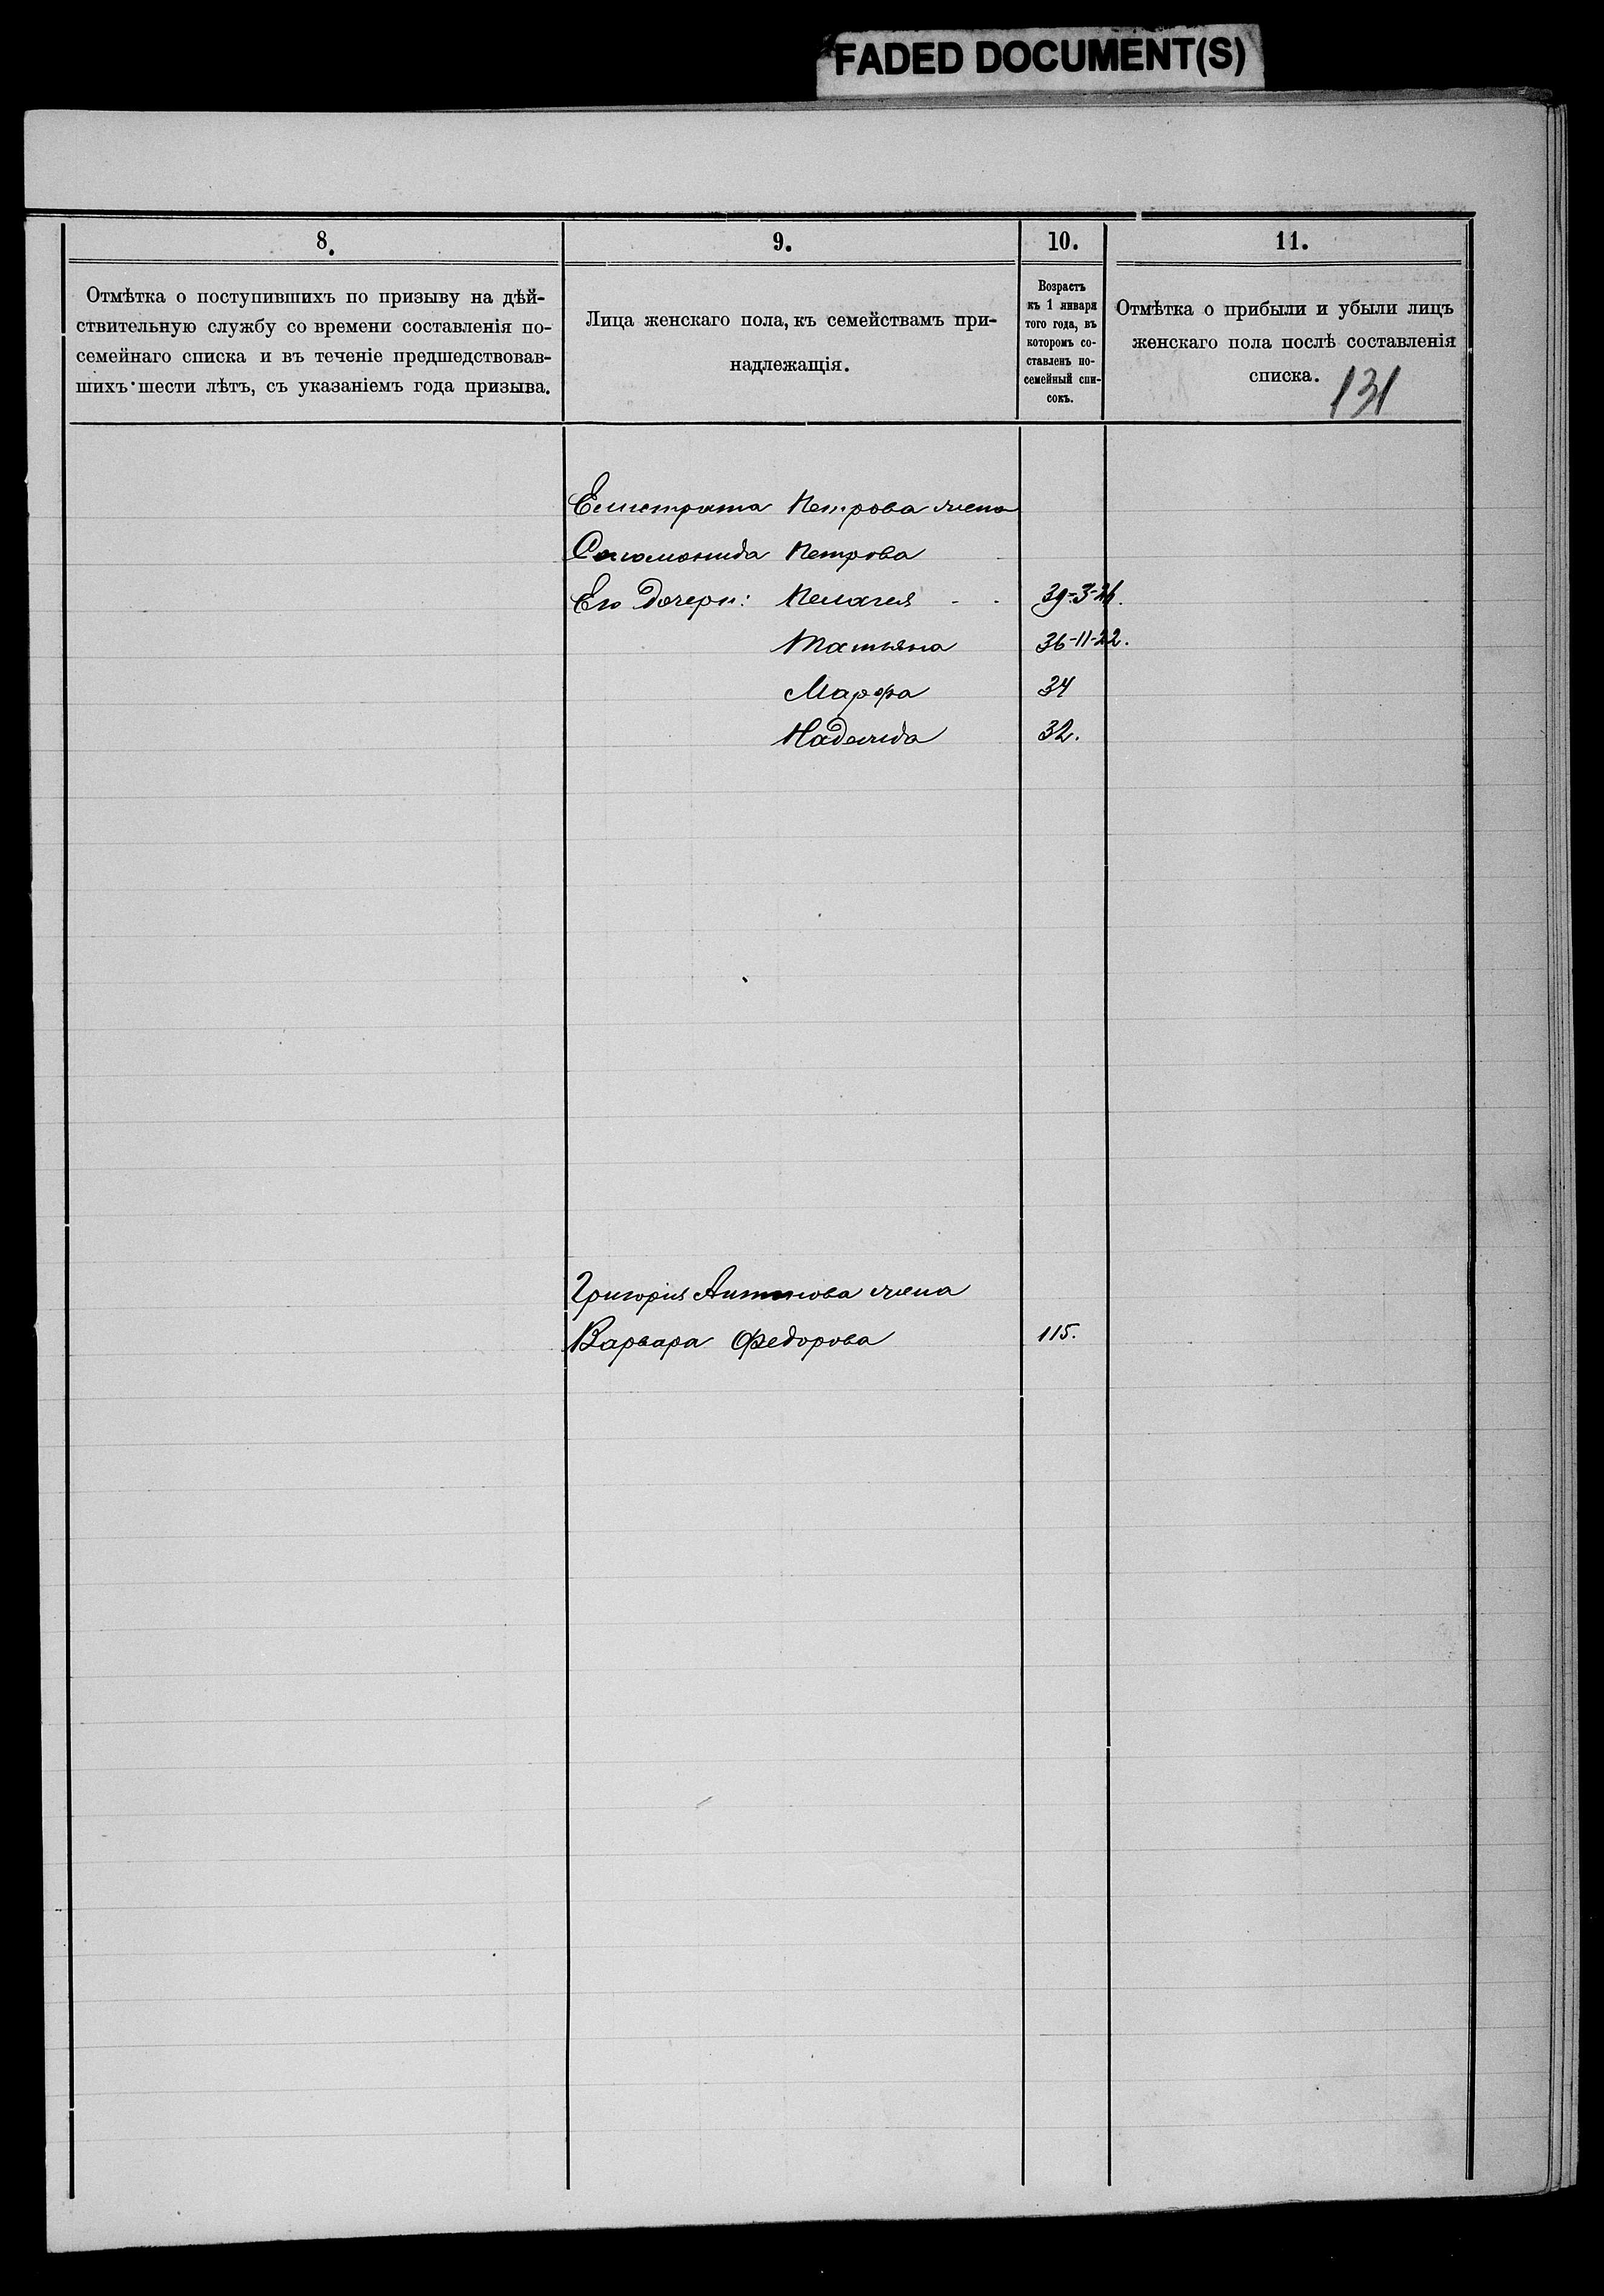 FADED DOCUMENT(S)
8.
Отмѣтка о поступившихъ по призыву на дѣй-
ствительную службу со времени составленія по-
семейнаго списка и въ теченіе предшедствовав-
шихъ шести лѣтъ, съ указаніемъ года призыва.
9.
Лица женскаго пола, къ семействамъ при-
надлежащія.
10.
Возрастъ
къ 1 января
того года, въ
которомъ со-
ставленъ по-
семейный спи-
сокъ.
11.
Отмѣтка о прибыли и убыли лицъ
женскаго пола послѣ составленія
списка.
131
Елистрата Петрова жена
Соломонида Петрова
Его дочери: Пелагея 39-3-24.
Татьяна 36-11-22.
Марфа 34
Надежда 32.
Григорія Антонова жена
Варвара Федорова 115.